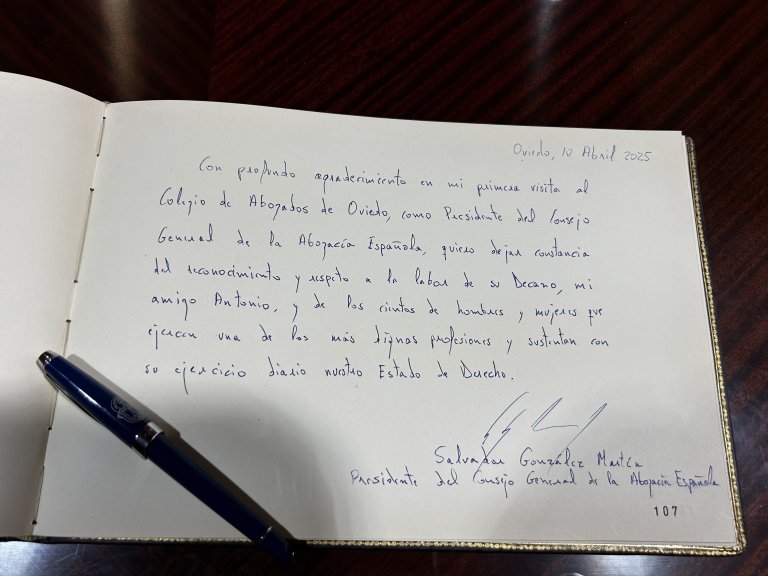 Oviedo, 10 Abril 2025
Con profundo agradecimiento en mi primera visita al
Colegio de Abogados de Oviedo, como Presidente del Consejo
General de la Abogacía Española, quiero dejar constancia
del reconocimiento y respeto a la labor de su Decano, mi
amigo Antonio, y de los cientos de hombres y mujeres que
ejercen una de las más dignas profesiones y sustentan con
su ejercicio diario nuestro Estado de Derecho.
Salvador González Martín
Presidente del Consejo General de la Abogacía Española
107